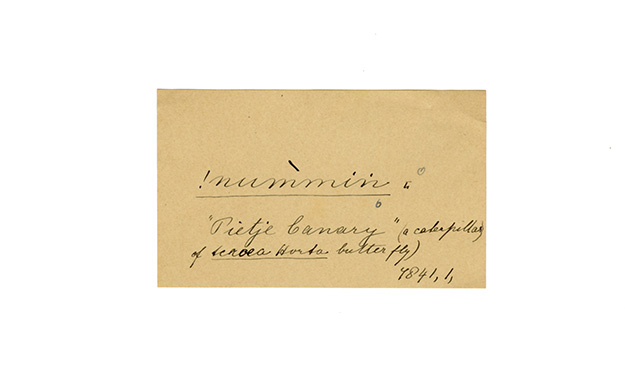 !nummin
"Pietje Canary" (a caterpillar)
of acraea Horta butterfly)
7841,1,